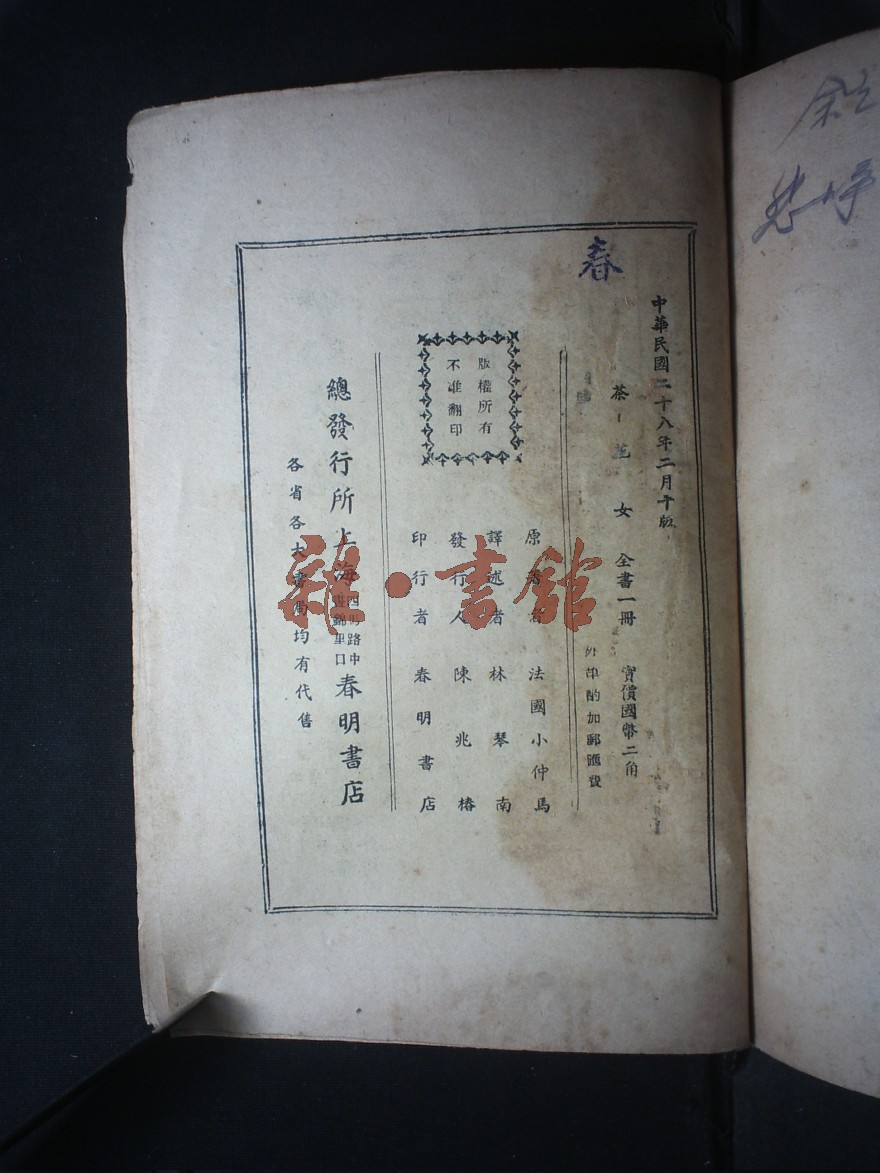 春
中華民國二十八年二月十版
茶花女 全書一冊 實價國幣二角
外埠酌加郵匯費
版權所有
不准翻印
原著者 法國小仲馬
譯述者 林琴南
發行人 陳兆椿
印行者 春明書店
總發行所上海四馬路中晝錦里口春明書店
各省各大書局均有代售
雜·書館